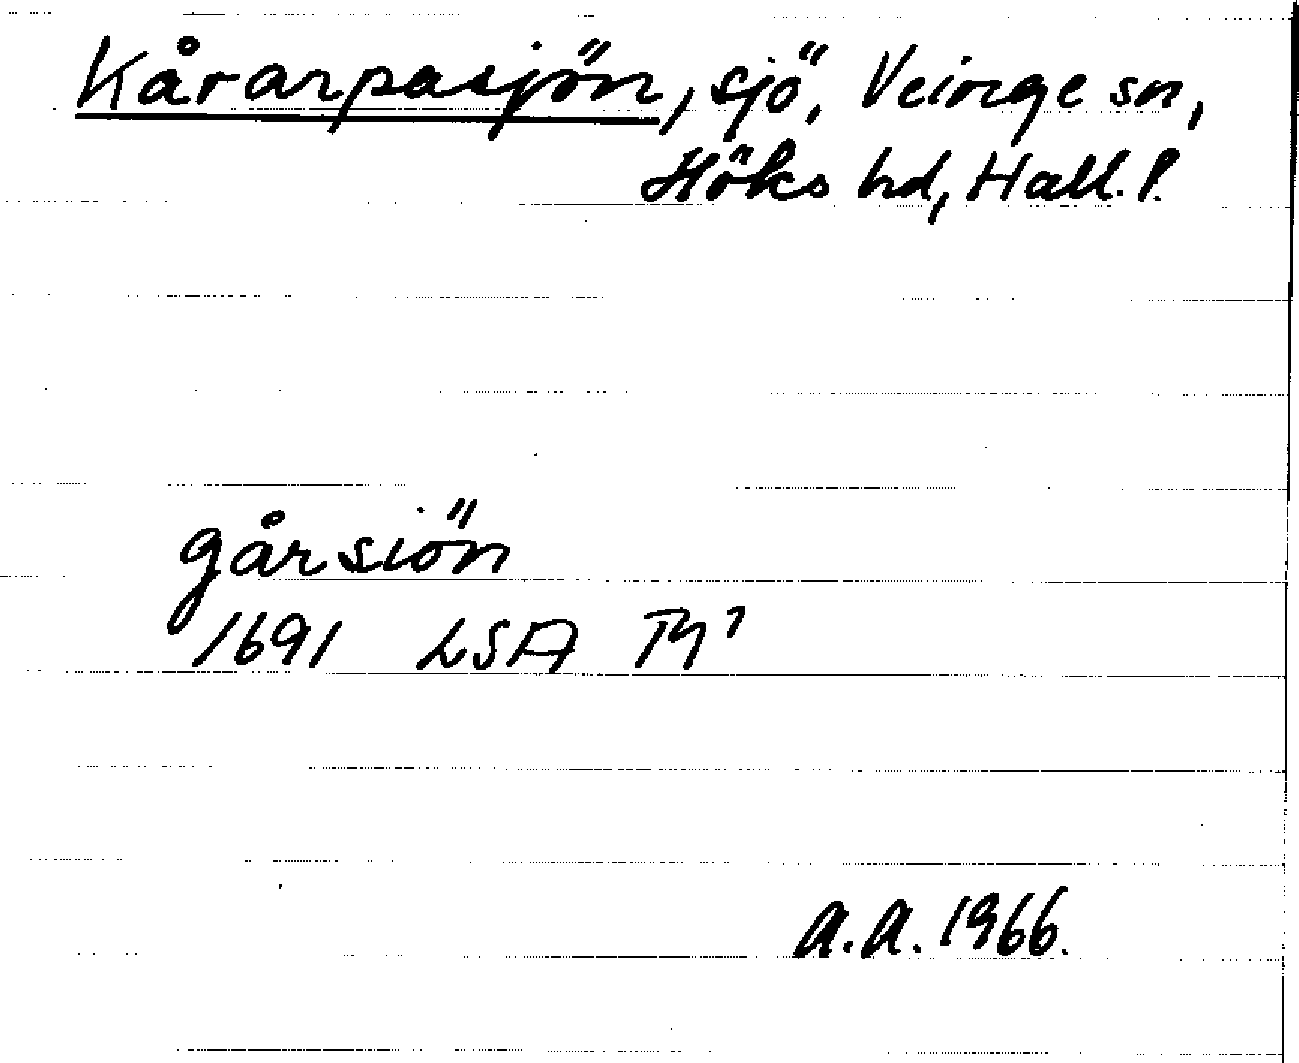 Kårarpasjön, sjö, Veinge sn,
Höks hd, Hall. l.
gårsiön
1691 LSA
a.a. 1966.